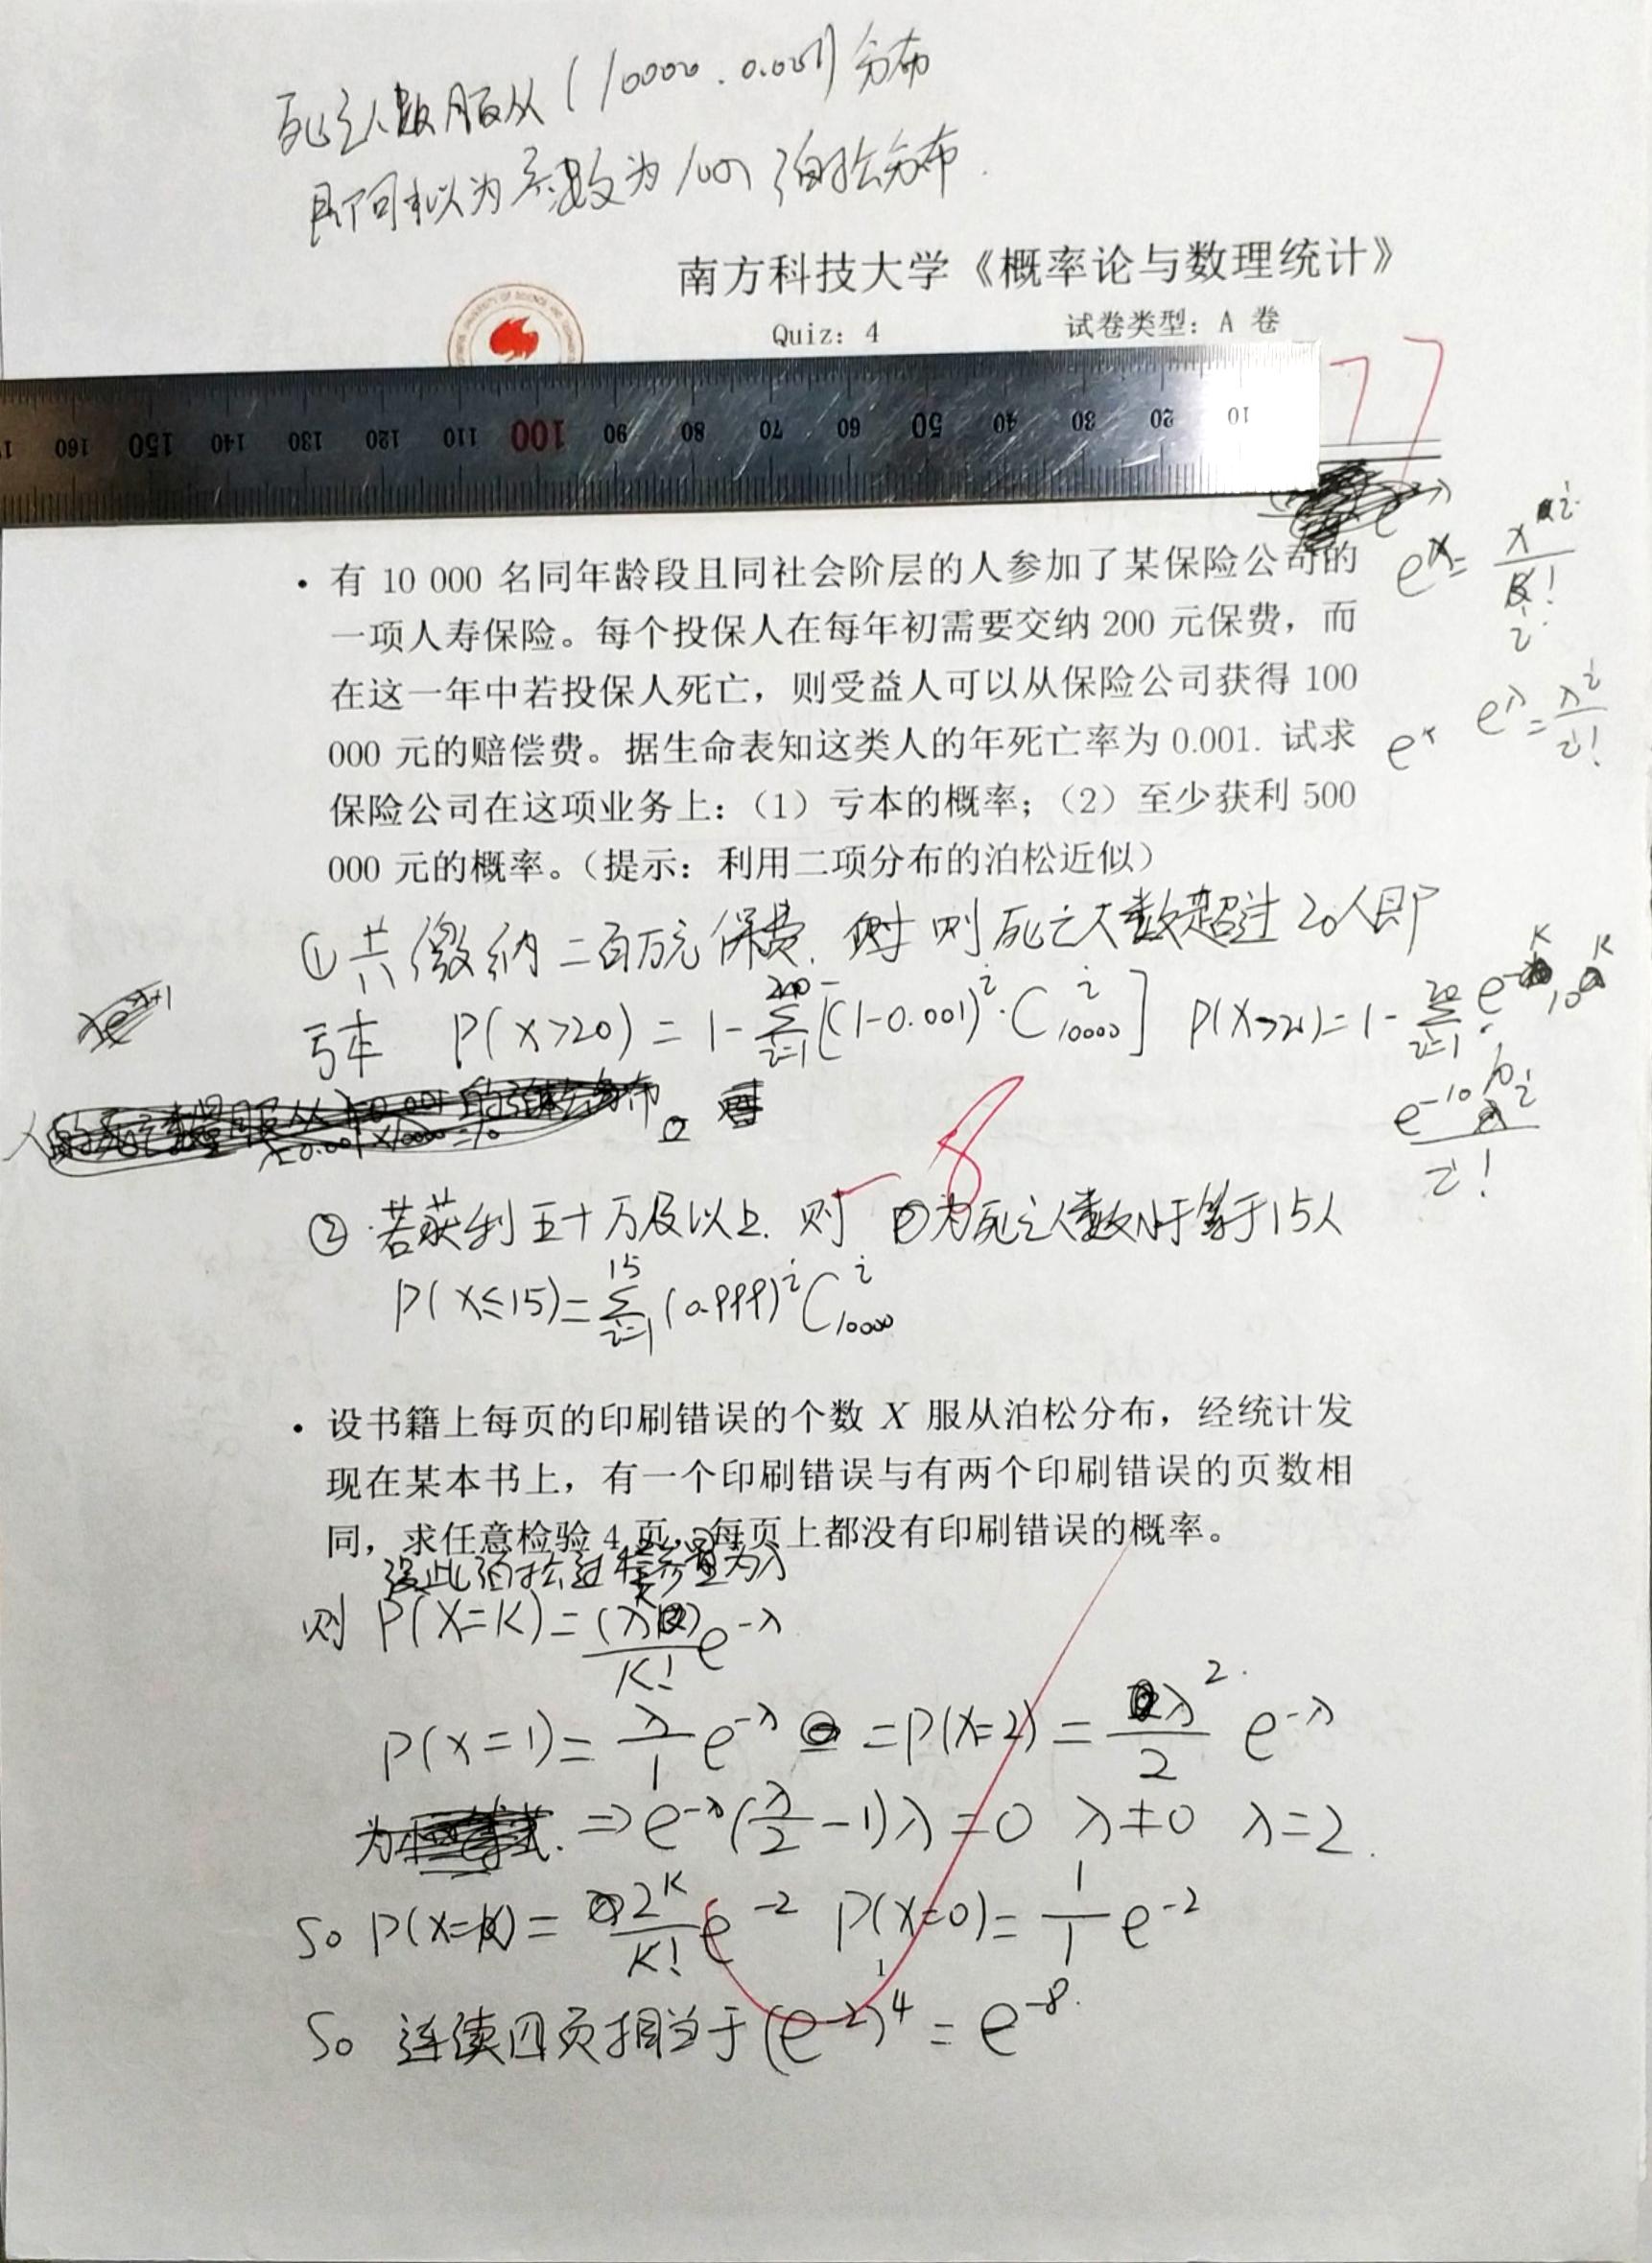 死亡人数服从(10000.0.001)分布
即可拟为系数为 泊松分布.
南方科技大学《概率论与数理统计》
Quiz: 4 试卷类型: A 卷
77
160 150 140 130 120 110 100 90 80 70 60 50 40 30 20 10
· 有 10 000 名同年龄段且同社会阶层的人参加了某保险公司的
一项人寿保险。每个投保人在每年初需要交纳 200 元保费，而
在这一年中若投保人死亡，则受益人可以从保险公司获得 100
000 元的赔偿费。据生命表知这类人的年死亡率为 0.001. 试求
保险公司在这项业务上：（1）亏本的概率；（2）至少获利 500
000 元的概率。（提示：利用二项分布的泊松近似）
e^x = x^i / i!
e^x e^λ = λ^i / i!
①共缴纳二百万元保费. 则死亡人数超过20人即
亏本 P(X>20) = 1-∑_{i=1}^{20}[(1-0.001)^i·C_{10000}^i] P(X>20)=1-∑_{i=1}^{20}
e^{-10} 10^i / i!
-8
②若获利五十万及以上. 则 为死亡人数小于等于15人
P(X≤15)=∑_{i=1}^{15}(0.999)^i C_{10000}^i
· 设书籍上每页的印刷错误的个数 X 服从泊松分布，经统计发
现在某本书上，有一个印刷错误与有两个印刷错误的页数相
同，求任意检验 4 页，每页上都没有印刷错误的概率。
设此泊松过程参量为λ
则 P(X=K)=(λ)^K/K! e^{-λ}
P(X=1)=λ/1 e^{-λ} =P(X=2)=λ²/2 e^{-λ}
为 ⇒e^{-λ}(λ/2-1)λ=0 λ≠0 λ=2.
So P(X=K)=2^K/K! e^{-2} P(X=0)=1/1 e^{-2}
1
So 连续四页相当于(e^{-2})^4=e^{-8}.